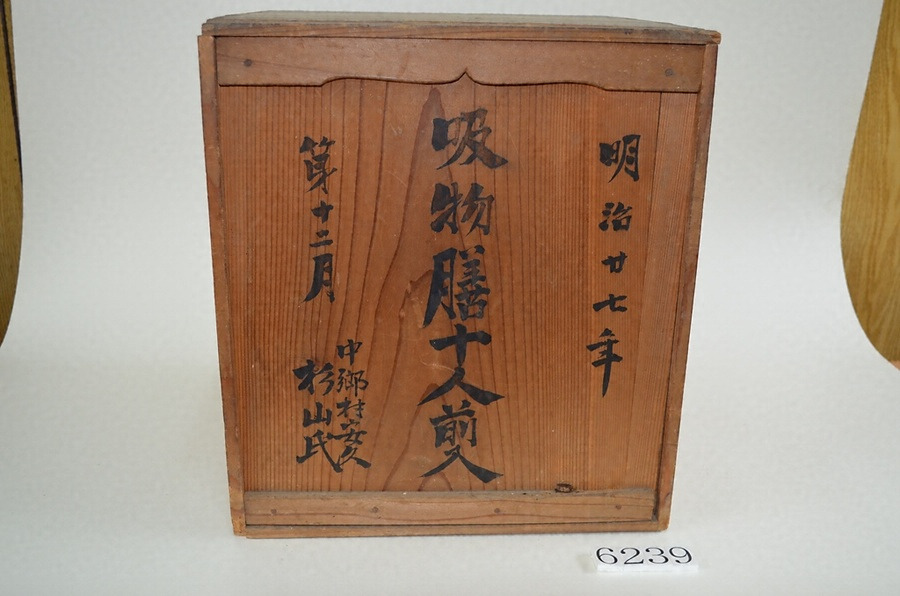 明治廿七年
吸物膳十人前入
第十二月
中郷村安久
杉山氏
6239